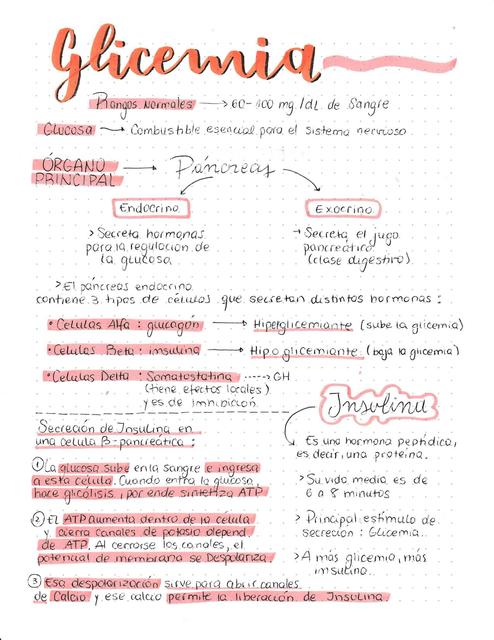 Glicemia
Rangos Normales → 60-100 mg/dL de Sangre
Glucosa → Combustible esencial para el sistema nervioso
ÓRGANO
PRINCIPAL → Páncreas
Endocrino
> Secreta hormonas
para la regulación de
la glucosa
Exocrino
→ Secreta el jugo
pancreático
(clase digestivo)
> El páncreas endocrino
contiene 3 tipos de células que secretan distintos hormonas:
• Celulas Alfa : glucagón → Hiperglicemiante (sube la glicemia)
• Celulas Beta : insulina → Hipoglicemiante (baja la glicemia)
• Celulas Delta : Somatostatina ----→ GH
(tiene efectos locales)
y es de inhibición
Secreción de Insulina en
una celula B-pancreática :
① La glucosa sube en la sangre e ingresa
a esta célula. Cuando entra la glucosa,
hace glicólisis, por ende sintetiza ATP
② El ATP aumenta dentro de la célula
y cierra canales de potasio depend
de ATP. Al cerrarse los canales, el
potencial de membrana se Despolariza
③ Esa despolarización sirve para abrir canales
de Calcio y ese calcio permite la liberación de Insulina.
Insulina
Es una hormona peptídica,
es decir, una proteína.
> Su vida media es de
6 a 8 minutos
> Principal estímulo de
secreción : Glicemia.
> A más glicemia, más
insulina.